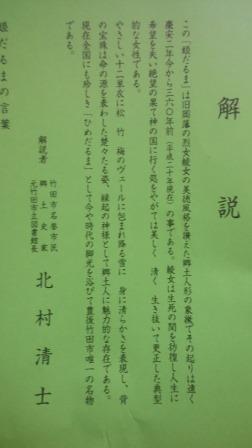 解説
この「姫だるま」は旧岡藩の烈女綾女の美徳風格を讃えた郷土人形の象徴でその起りは遠く
慶安二年今から三六〇年前（平成二十年現在）の事である。綾女は生死の間を彷徨し人生に
希望を失い絶望の果て神の国に行く処をやがては美しく 清く 生き抜いて更正した典型
的な女性である。
やさしい十二単衣に松 竹 梅のヴェールに包まれ降る雪に 身に清らかさを表現し、背
の宝珠は命の源を表わした楚々たる姿、縁起の神様として郷土人に魅力的な存在である。
現在全国にも珍しき「ひめだるま」として今や時代の脚光を浴びて豊後竹田市唯一の名物
である。
解説者
竹田市名誉市民
郷土史家
元竹田市立図書館長
北村清士
姫だるまの言葉